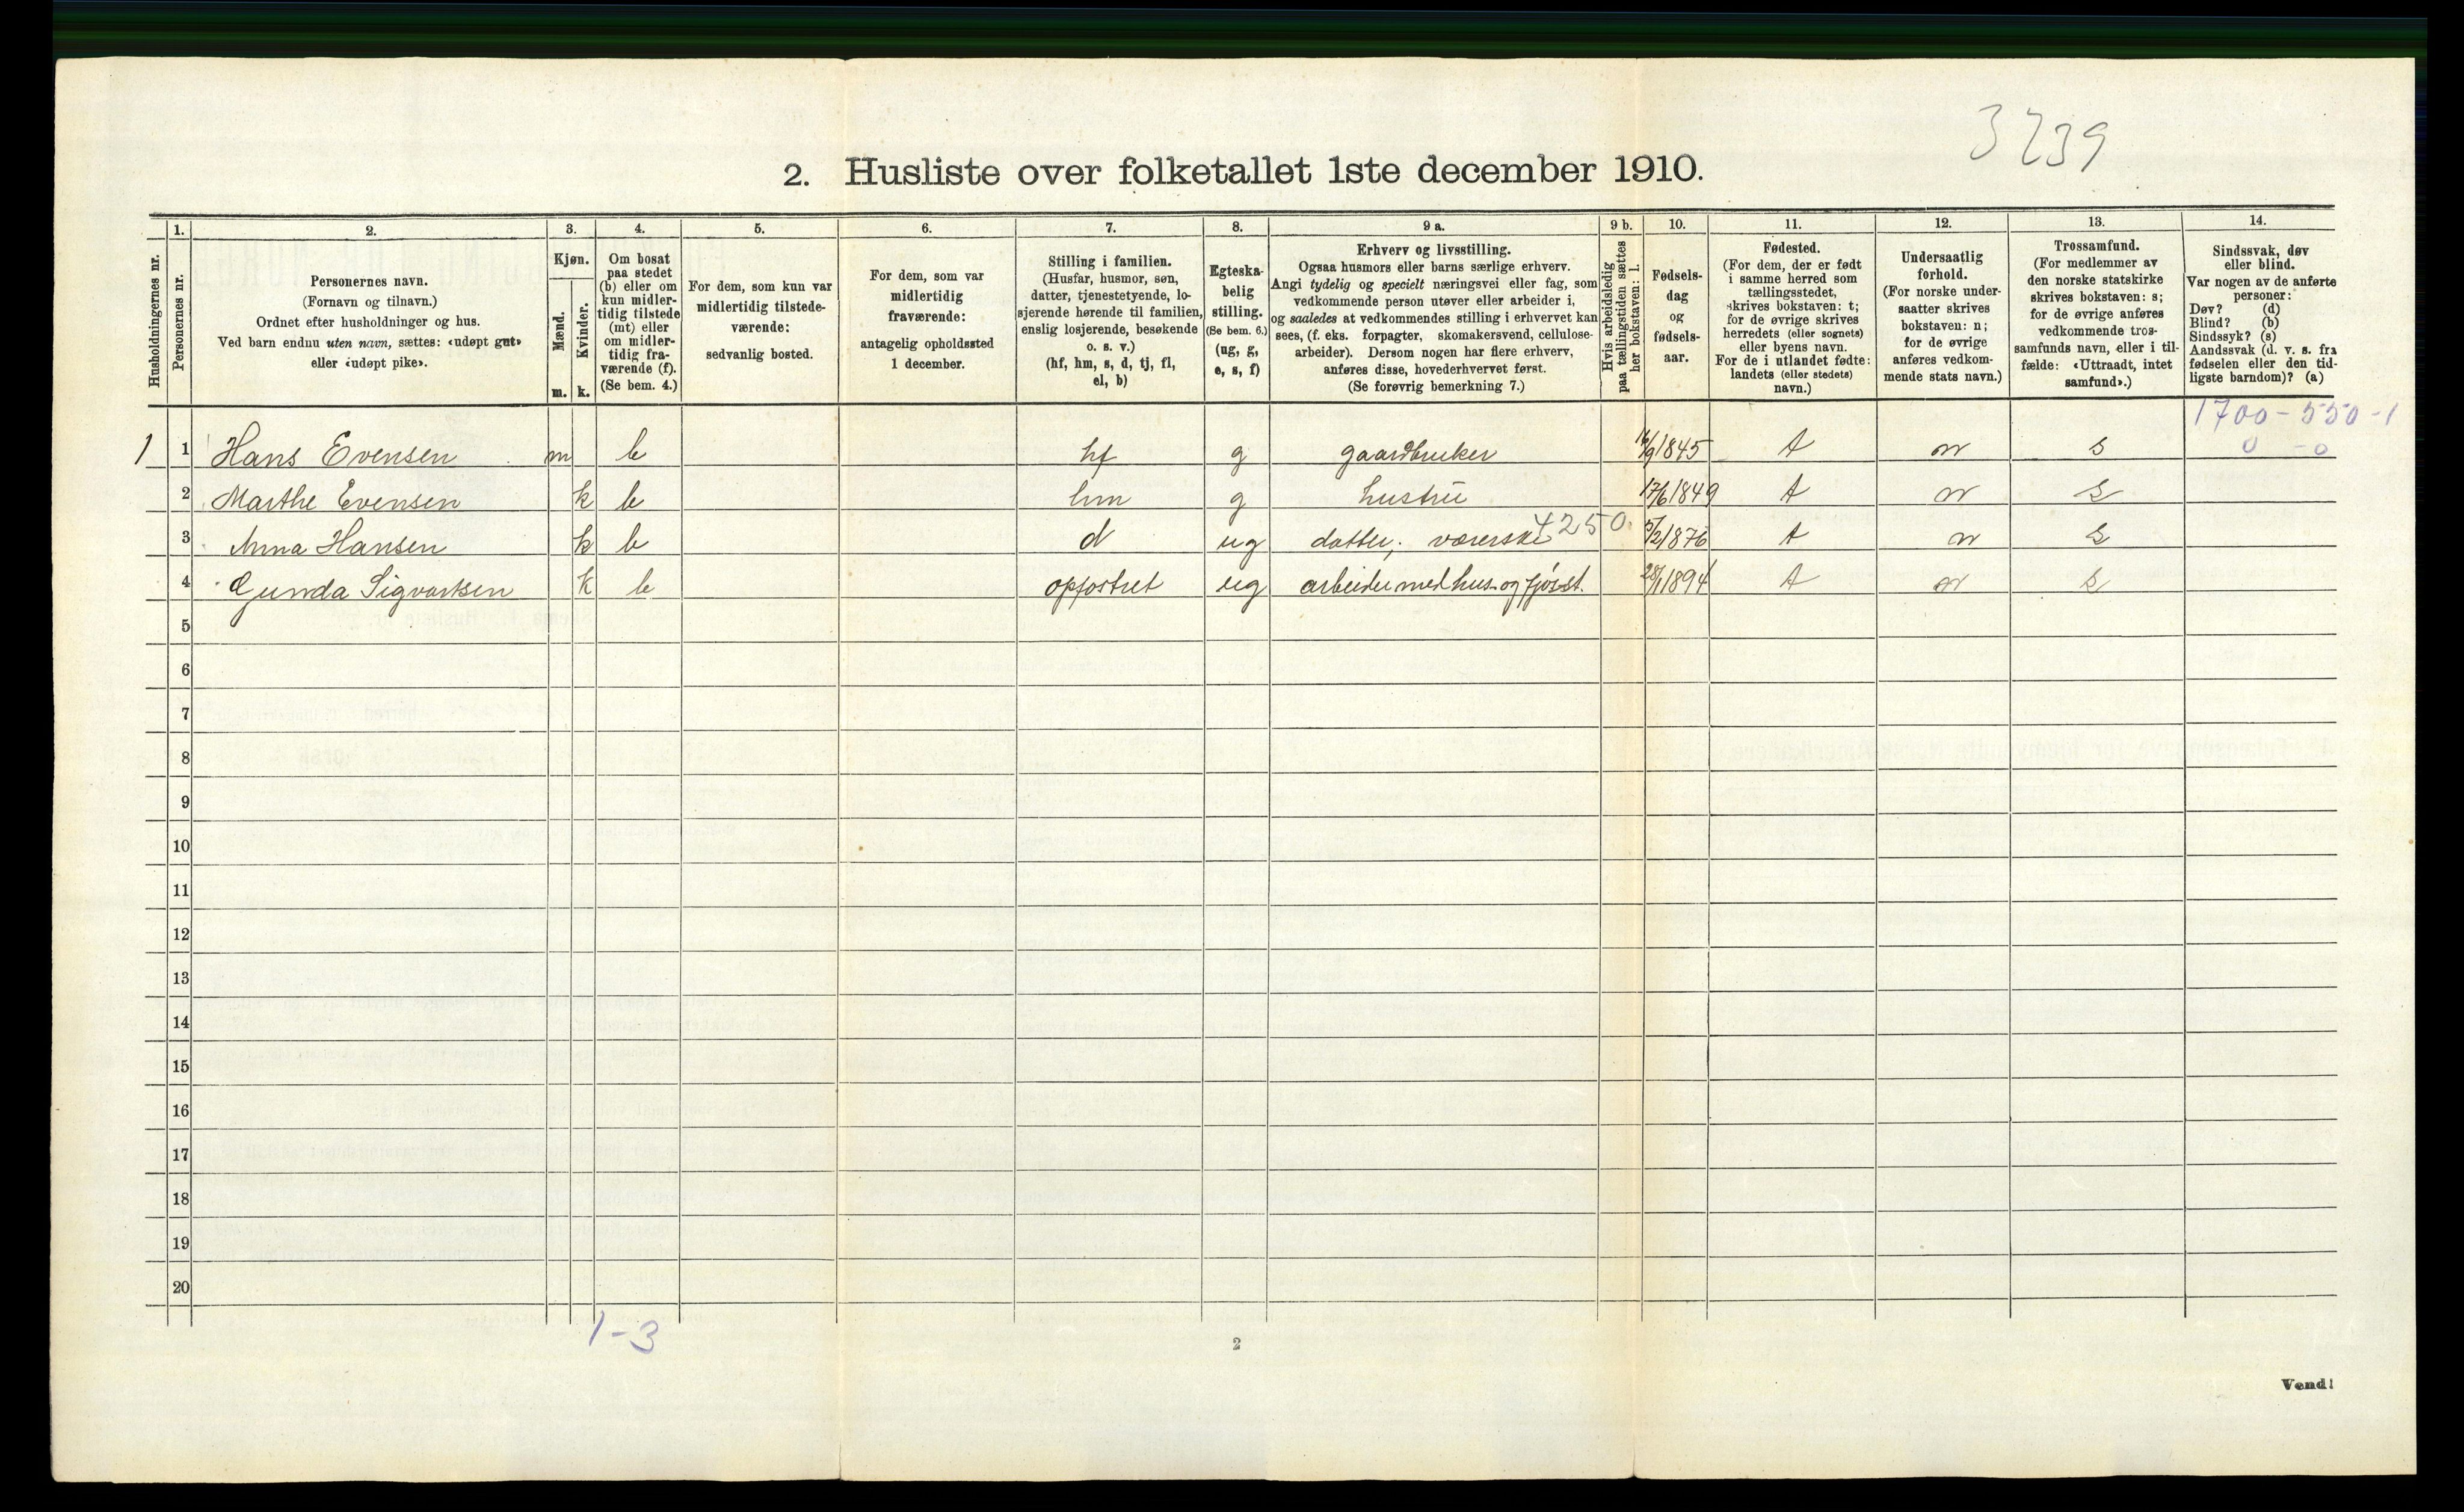 3239
2. Husliste over folketallet 1ste december 1910.
Husholdningernes nr.
1.
Personernes nr.
2.
Personernes navn.
(Fornavn og tilnavn.)
Ordnet efter husholdninger og hus.
Ved barn endnu uten navn, sættes: «udøpt gut»
eller «udøpt pike».
3.
Kjøn.
Mænd.
Kvinder.
m. k.
4.
Om bosat
paa stedet
(b) eller om
kun midler-
tidig tilstede
(mt) eller
om midler-
tidig fra-
værende (f).
(Se bem. 4.)
5.
For dem, som kun var
midlertidig tilstede-
værende:
sedvanlig bosted.
6.
For dem, som var
midlertidig
fraværende:
antagelig opholdssted
1 december.
7.
Stilling i familien.
(Husfar, husmor, søn,
datter, tjenestetyende, lo-
sjerende hørende til familien,
enslig losjerende, besøkende
o. s. v.)
(hf, hm, s, d, tj, fl,
el, b)
8.
Egteska-
belig
stilling.
(Se bem. 6.)
(ug, g,
e, s, f)
9 a.
Erhverv og livsstilling.
Ogsaa husmors eller barns særlige erhverv.
Angi tydelig og specielt næringsvei eller fag, som
vedkommende person utøver eller arbeider i,
og saaledes at vedkommendes stilling i erhvervet kan
sees, (f. eks. forpagter, skomakersvend, cellulose-
arbeider). Dersom nogen har flere erhverv,
anføres disse, hovederhvervet først.
(Se forøvrig bemerkning 7.)
9 b.
Hvis arbeidsledig
paa tællingstiden sættes
her bokstaven: l.
10.
Fødsels-
dag
og
fødsels-
aar.
11.
Fødested.
(For dem, der er født
i samme herred som
tællingsstedet,
skrives bokstaven: t;
for de øvrige skrives
herredets (eller sognets)
eller byens navn.
For de i utlandet fødte:
landets (eller stedets)
navn.)
12.
Undersaatlig
forhold.
(For norske under-
saatter skrives
bokstaven: n;
for de øvrige
anføres vedkom-
mende stats navn.)
13.
Trossamfund.
(For medlemmer av
den norske statskirke
skrives bokstaven: s;
for de øvrige anføres
vedkommende tros-
samfunds navn, eller i til-
fælde: «Uttraadt, intet
samfund».)
14.
Sindssvak, døv
eller blind.
Var nogen av de anførte
personer:
Døv? (d)
Blind? (b)
Sindssyk? (s)
Aandssvak (d. v. s. fra
fødselen eller den tid-
ligste barndom)? (a)
1700-550-1
0 -0
1 1 Hans Evensen m b hf g gaardbruker 16/9 1845 t n s
2 Marthe Evensen k b hm g hustru 17/6 1849 t n s
3 Anna Hansen k b d ug datter; væverske 4250. 5/2 1876 t n s
4 Gunda Sigvartsen k b opfostret ug arbeider med hus- og fjøsst. 28/1 1894 t n s
5
6
7
8
9
10
11
12
13
14
15
16
17
18
19
20
1-3
2
Vend!